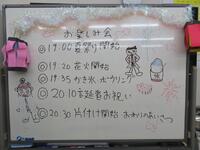 お楽しみ会
◎19:00 夏祭り開始
◎19:20 花火開始
◎19:35 かき氷 ボウリング
◎20:10 誕生者お祝い
◎20:30 片付け開始 おわりのあいさつ